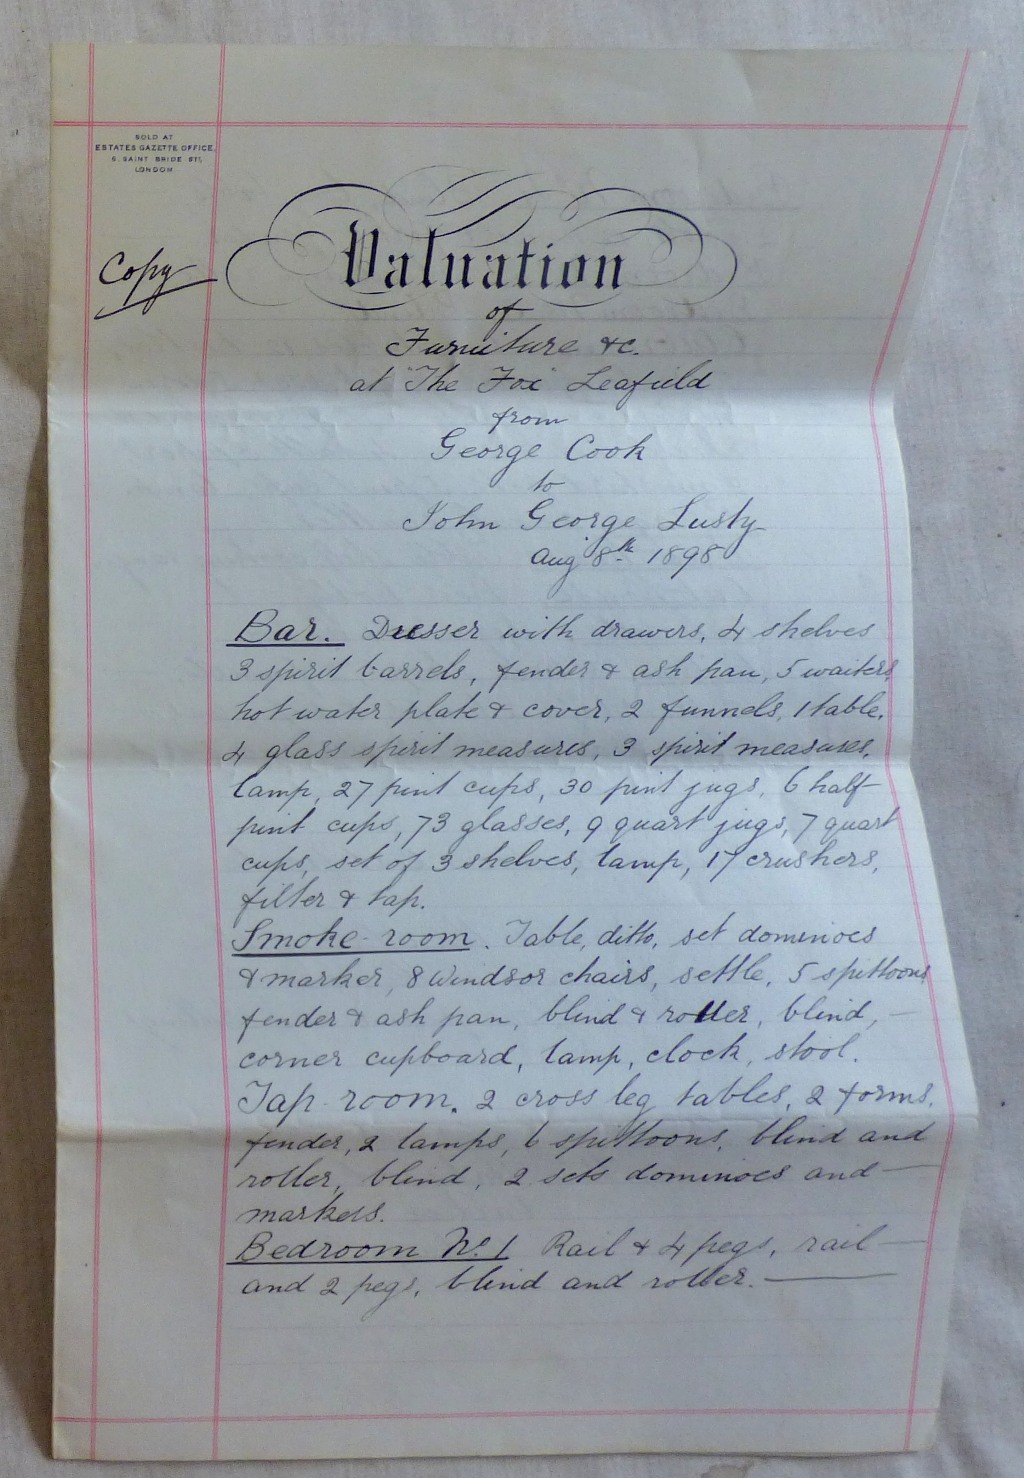 SOLD AT
ESTATES GAZETTE OFFICE,
6. SAINT BRIDE ST.,
LONDON
Copy
Valuation
of
Furniture &c.
at "The Fox" Leafield
from
George Cook
to
John George Lusty
Aug 8th 1898
Bar. Dresser with drawers, 4 shelves
3 spirit barrels, fender & ash pan, 5 waiters,
hot water plate & cover, 2 funnels, 1 table,
4 glass spirit measures, 3 spirit measures,
lamp, 27 pint cups, 30 pint jugs, 6 half
pint cups, 73 glasses, 9 quart jugs, 7 quart
cups, set of 3 shelves, lamp, 17 crushers,
filter & tap.
Smoke-room. Table, ditto, set dominoes
& marker, 8 Windsor chairs, settle, 5 spittoons
fender & ash pan, blind & roller, blind, —
corner cupboard, lamp, clock, stool.
Tap-room. 2 cross leg tables, 2 forms,
fender, 2 lamps, 6 spittoons, blind and
roller, blind, 2 sets dominoes and —
markers.
Bedroom No. 1 Rail & 4 pegs, rail —
and 2 pegs, blind and roller. —